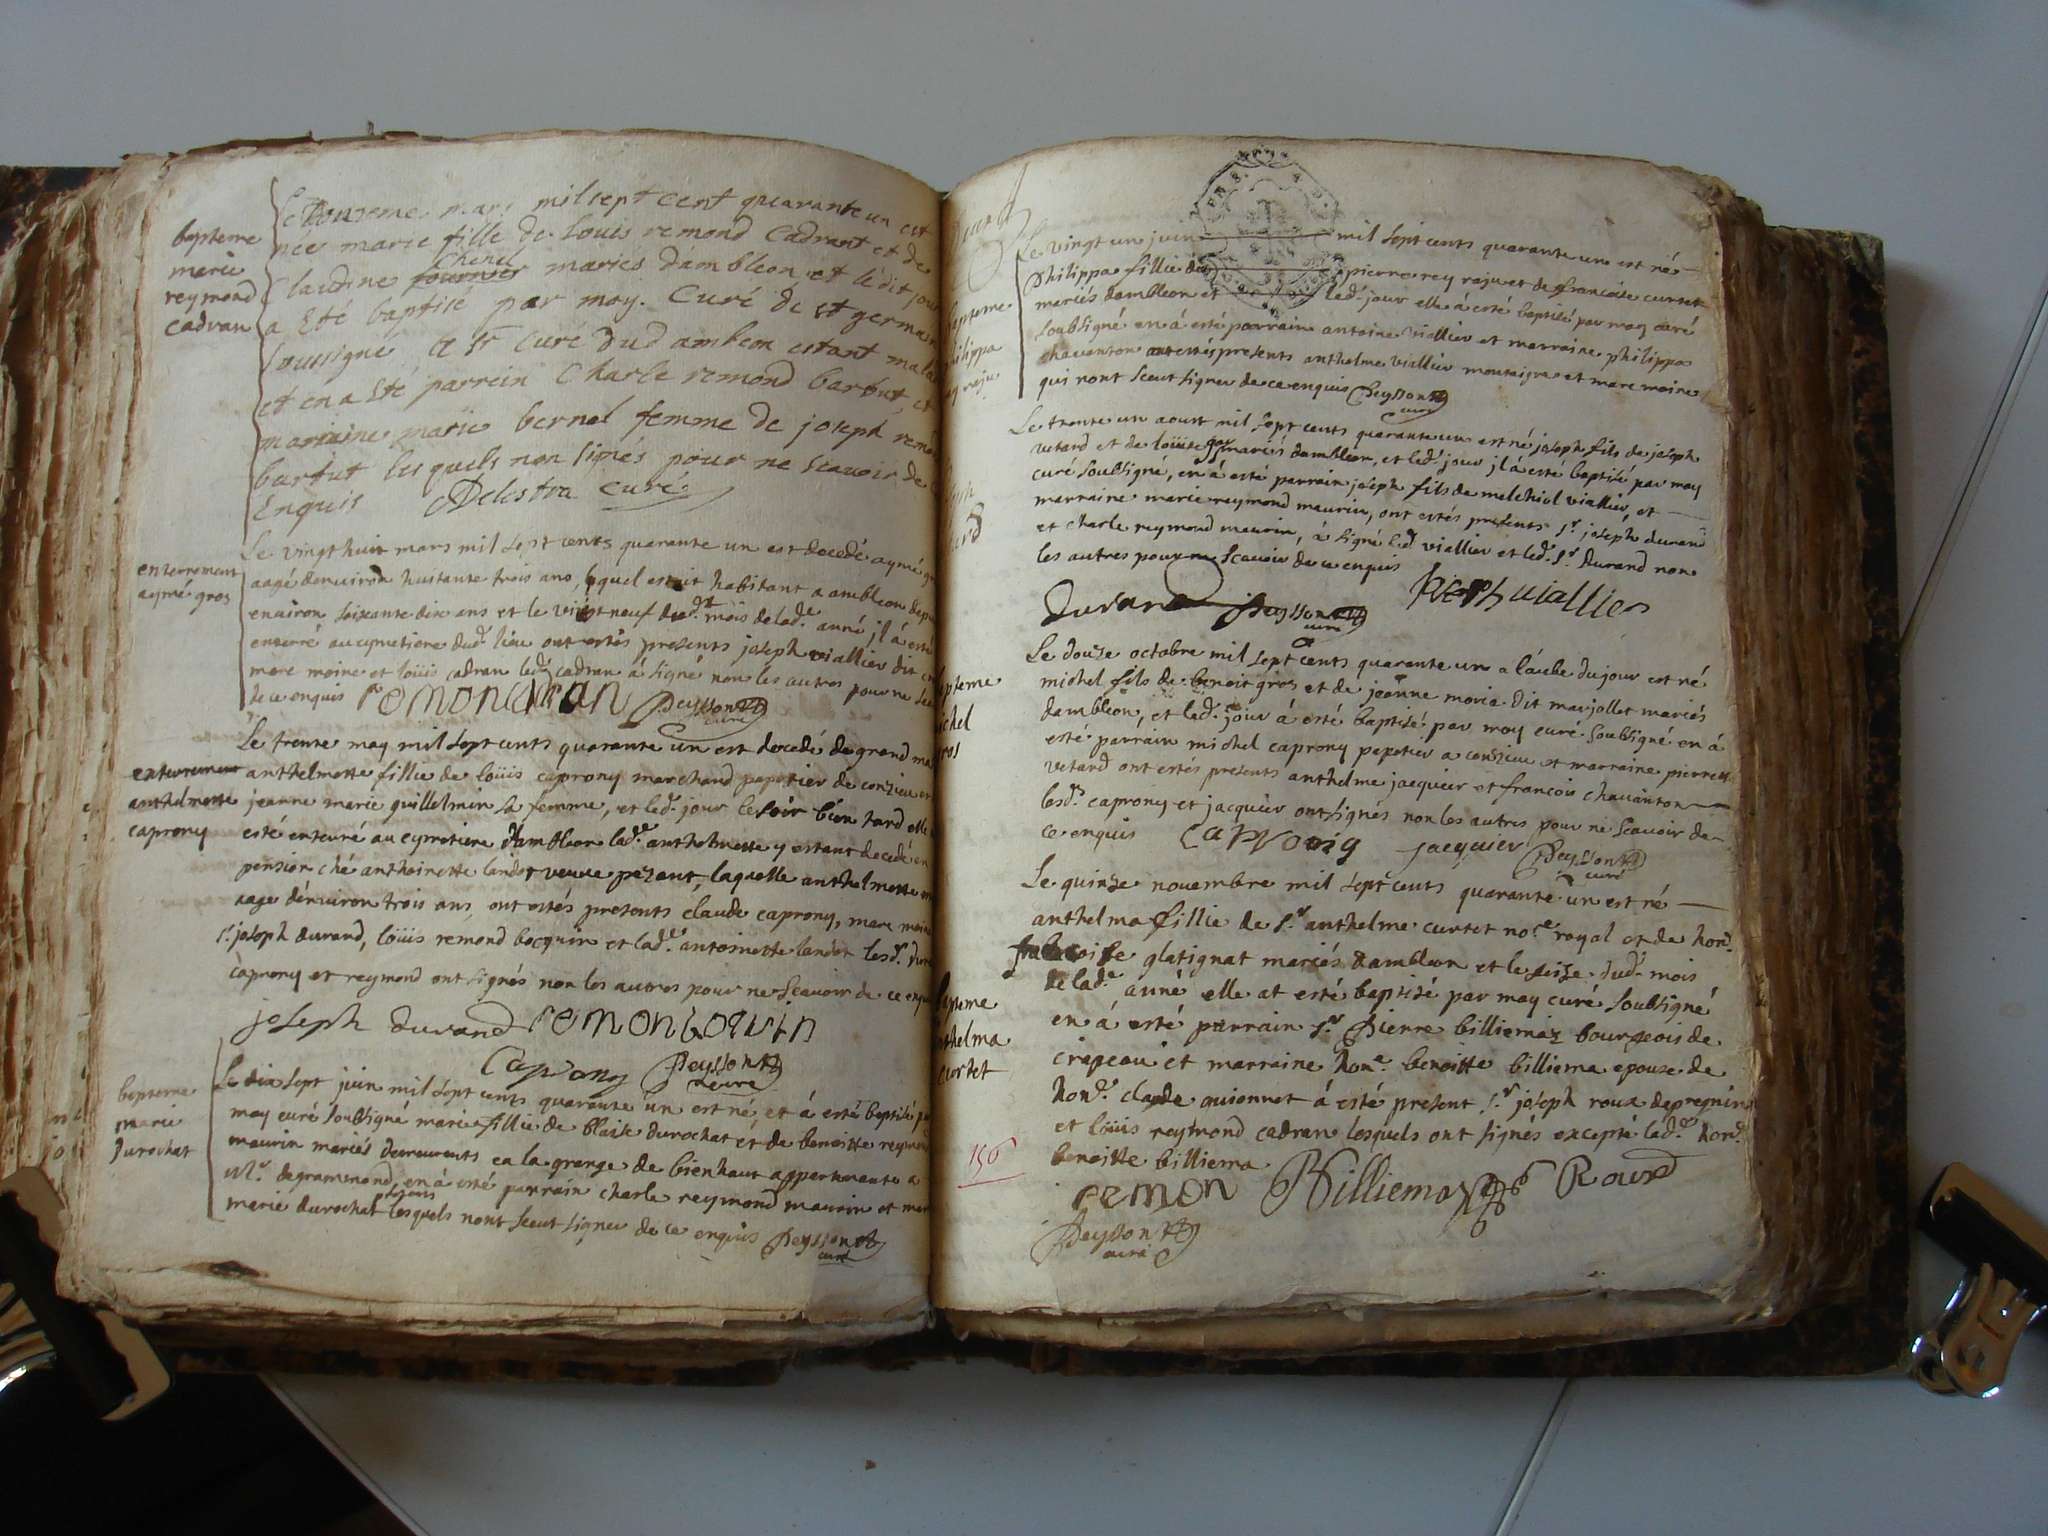 bapteme
marie
reymond
cadran
mars mil sept cent quarante un est
née marie fille de Louis remond Cadrant et de
Claudine Chenel mariés dambleon et le dit jour
a Eté baptisé par moy. Curé de st germain
Soussigné le sr curé dud ambleon estant mala
et en a Eté parrein Charle remond barbut, et
marraine marie bernel femme de joseph remo
barbut lesquels non signés pour ne scavoir de
Enquis Delestra curé
enterrement
aymé gros
Le vingt huit mars mil sept cents quarante un est decedé aymé gr
aagé denviron huitante trois ans, lequel estoit habitant a ambleon depu
environ soixante dix ans et le vingt neuf dud.t mois de lad.e anné jl á esté
enterré au cymetiere dud. lieu ont estés presents joseph viallier dit
marc moine et loüis cadran led. cadran á signé non les autres pour ne sca
de ce enquis remon cadran Peysson curé
enterrement
anthelmette
caprony
Le trente may mil sept cents quarante un est decedé de grand ma
anthelmette fillie de loüis caprony marchand papetier de conzieu et
jeanne marie guillelmin sa femme, et led. jour le soir bien tard elle
esté enterré au cymetiere dambleon lad.e anthelmette y estant decedé en
pension ché anthoinette landot veuve pezant, laquelle anthelmette
aagé denviron trois ans, ont estés presents claude caprony, marc moine
s.r joseph durand, loüis remond bocquin et lad.e antoinette landot lesd.
caprony et reymond ont signés non les autres pour ne scavoir de ce enqu
joseph durand remon boquin
Caprony Peysson curé
bapteme
marie
durochat
Le dix sept juin mil sept cents quarante un est né, et á esté baptisé p
moy curé soubsigné marie fillie de blaise durochat et de benoitte reymond
maurin mariés demeurents en la grange de bienhaut appartenante a
Mr. degrammond, en á esté parrain charle reymond maurin et mar
marie durochat lesquels nont sceut signer de ce enquis Peysson curé
bapteme
philippa
rey raju
Le vingt un juin mil sept cents quarante un est né
Philippa fillie de pierre rey raju et de francoise curtet
mariés dambleon et led. jour elle á esté baptisé par moy curé
soubsigné en á esté parrain antoine viallier et marraine philippa
chavanton ont estés presents anthelme viallier montaigre et marc moine
qui nont sceut signer de ce enquis Peysson curé
Le trente un aoust mil sept cents quarante un est né joseph fils de joseph
vetard et de loüise mariés dambleon, et led. jour jl á esté baptisé par moy
curé soubsigné, en á esté parrain joseph fils de melchiol viallier, et
marraine marie reymond maurin, ont estés presents s.r joseph durand
et charle reymond maurin, á signé led. viallier et led. s.r durand non
les autres pour ne scavoir de ce enquis
durand Peysson curé joseph viallier
bapteme
michel
gros
Le douze octobre mil sept cents quarante un a láube du jour est né
michel fils de benoit gros et de jeanne moria dit marjollet mariés
dambleon, et led. jour á esté baptisé par moy curé soubsigné en á
esté parrain michel caprony papetier a conzieu et marraine pierrette
vetard ont estés presents anthelme jacquier et francois chavanton
lesd. caprony et jacquier ont signés non les autres pour ne scavoir de
ce enquis caprony jacquier Peysson curé
bapteme
anthelma
curtet
Le quinze novembre mil sept cents quarante un est né
anthelma fillie de s.r anthelme curtet no.re royal et de hon.
francoise glatignat mariés dambleon et le seize dud. mois
de lad.e anné elle at esté baptisé par moy curé soubsigné
en á esté parrain s.r Pierre billiemaz bourgeois de
crapeau et marraine hon.e benoitte billiema epouse de
hon.e claude quionnet á esté present s.r joseph roux de
et loüis reymond cadran lesquels ont signés excepté lad.e hon.
benoitte billiema
156
remon Billiemaz Roux
Peysson curé